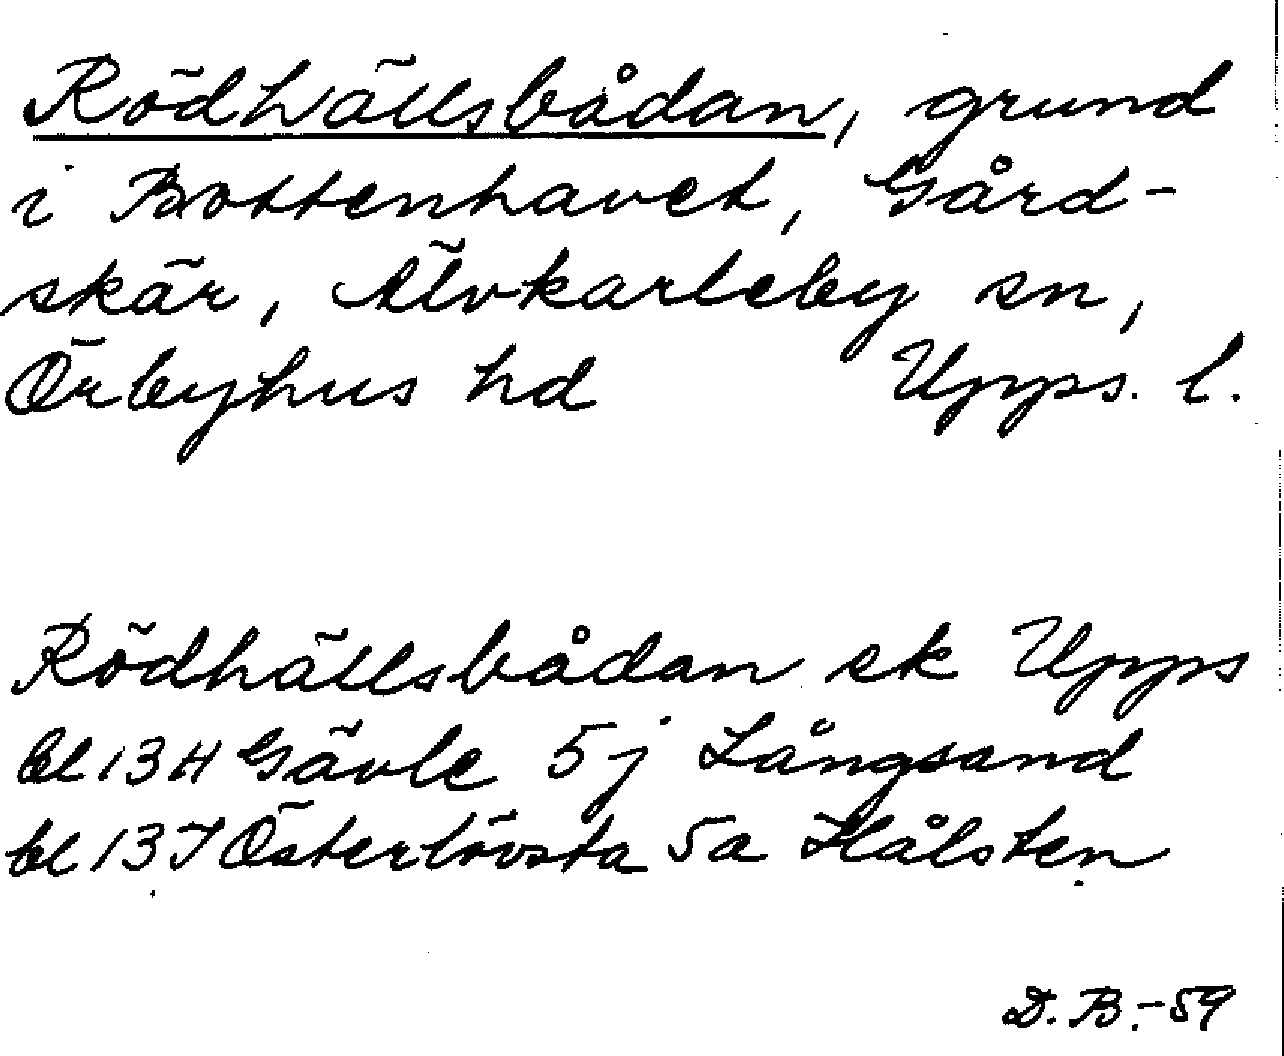 Rödhällsbådan, grund
i Bottenhavet, Gård-
skär, Älvkarleby sn,
Örbyhus hd Upps. l.
Rödhällsbådan ek Upps
bl 13 H Gävle 5 j Långsand
bl 13 I Österlövsta 5a Hålsten
D. B. -59